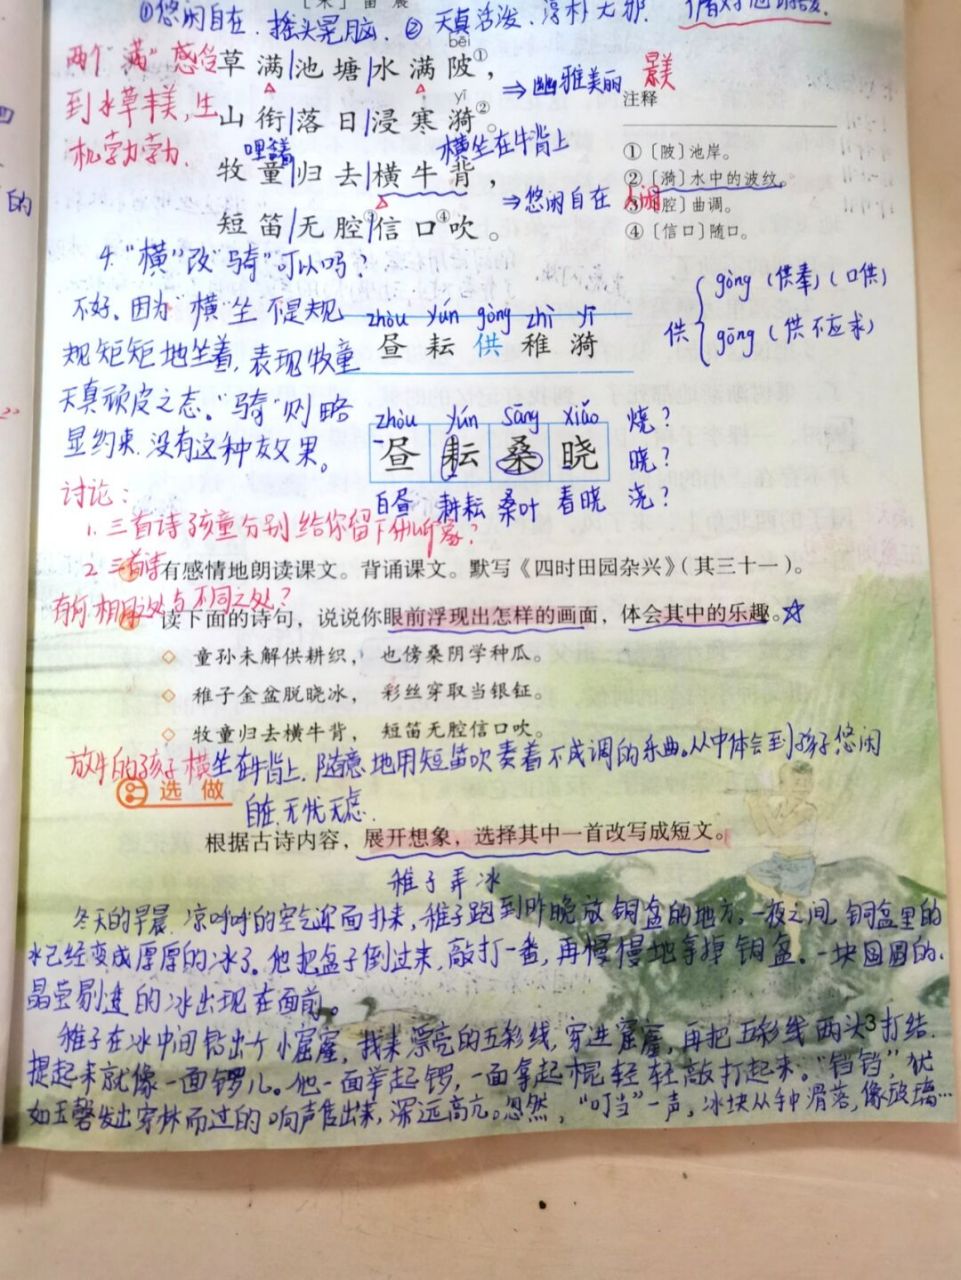 ①悠闲自在、摇头晃脑、② 天真活泼、淳朴无邪.
[宋] 雷震
两个"满"感受
到水草丰美,生
机勃勃.
bēi
草满|池塘|水满陂①,
⇒幽雅美丽
yǐ
山衔|落日|浸寒漪②。
横坐在牛背上
牧童|归去|横牛背,
⇒悠闲自在
短笛|无腔③|信口④吹。
景美
注释
①〔陂〕池岸。
②〔漪〕水中的波纹。
③〔腔〕曲调。
④〔信口〕随口。
4."横"改"骑"可以吗?
不好.因为"横"坐不是规
规矩矩地坐着,表现牧童
天真顽皮之态。"骑"则略
显约束.没有这种友效果。
zhòu yún gòng zhì yī
昼 耘 供 稚 漪
供
gòng (供奉)(口供)
gōng (供不应求)
zhòu yún sāng xiǎo
昼 耘 桑 晓
白昼 耕耘 桑叶 春晓
烧?
晓?
浇?
讨论:
1.三首诗孩童分别给你留下什么印象?
2.三首诗
有何相同之处与不同之处?
有感情地朗读课文。背诵课文。默写《四时田园杂兴》(其三十一)。
读下面的诗句,说说你眼前浮现出怎样的画面,体会其中的乐趣。☆
◇ 童孙未解供耕织, 也傍桑阴学种瓜。
◇ 稚子金盆脱晓冰, 彩丝穿取当银钲。
◇ 牧童归去横牛背, 短笛无腔信口吹。
放牛的孩子横坐在牛背上,随意地用短笛吹奏着不成调的乐曲。从中体会到孩子悠闲
自在.无忧无虑.
选做
根据古诗内容,展开想象,选择其中一首改写成短文。
稚子弄冰
冬天的早晨.凉呼呼的空气迎面扑来,稚子跑到昨晚放铜盆的地方。一夜之间,铜盆里的
水已经变成厚厚的冰了。他把盆子倒过来,敲打一番,再慢慢地拿掉铜盆。一块圆圆的.
晶莹剔透的冰出现在面前。
稚子在冰中间钻出个小窟窿,找来漂亮的五彩线,穿进窟窿,再把五彩线两头打结.
提起来就像一面锣儿。他一面举起锣,一面拿起棍轻轻敲打起来。"铛铛",犹
如玉磬发出穿林而过的响声隹出来,深远高亢。忽然,"叮当"一声,冰块从手中滑落,像玻璃…
3